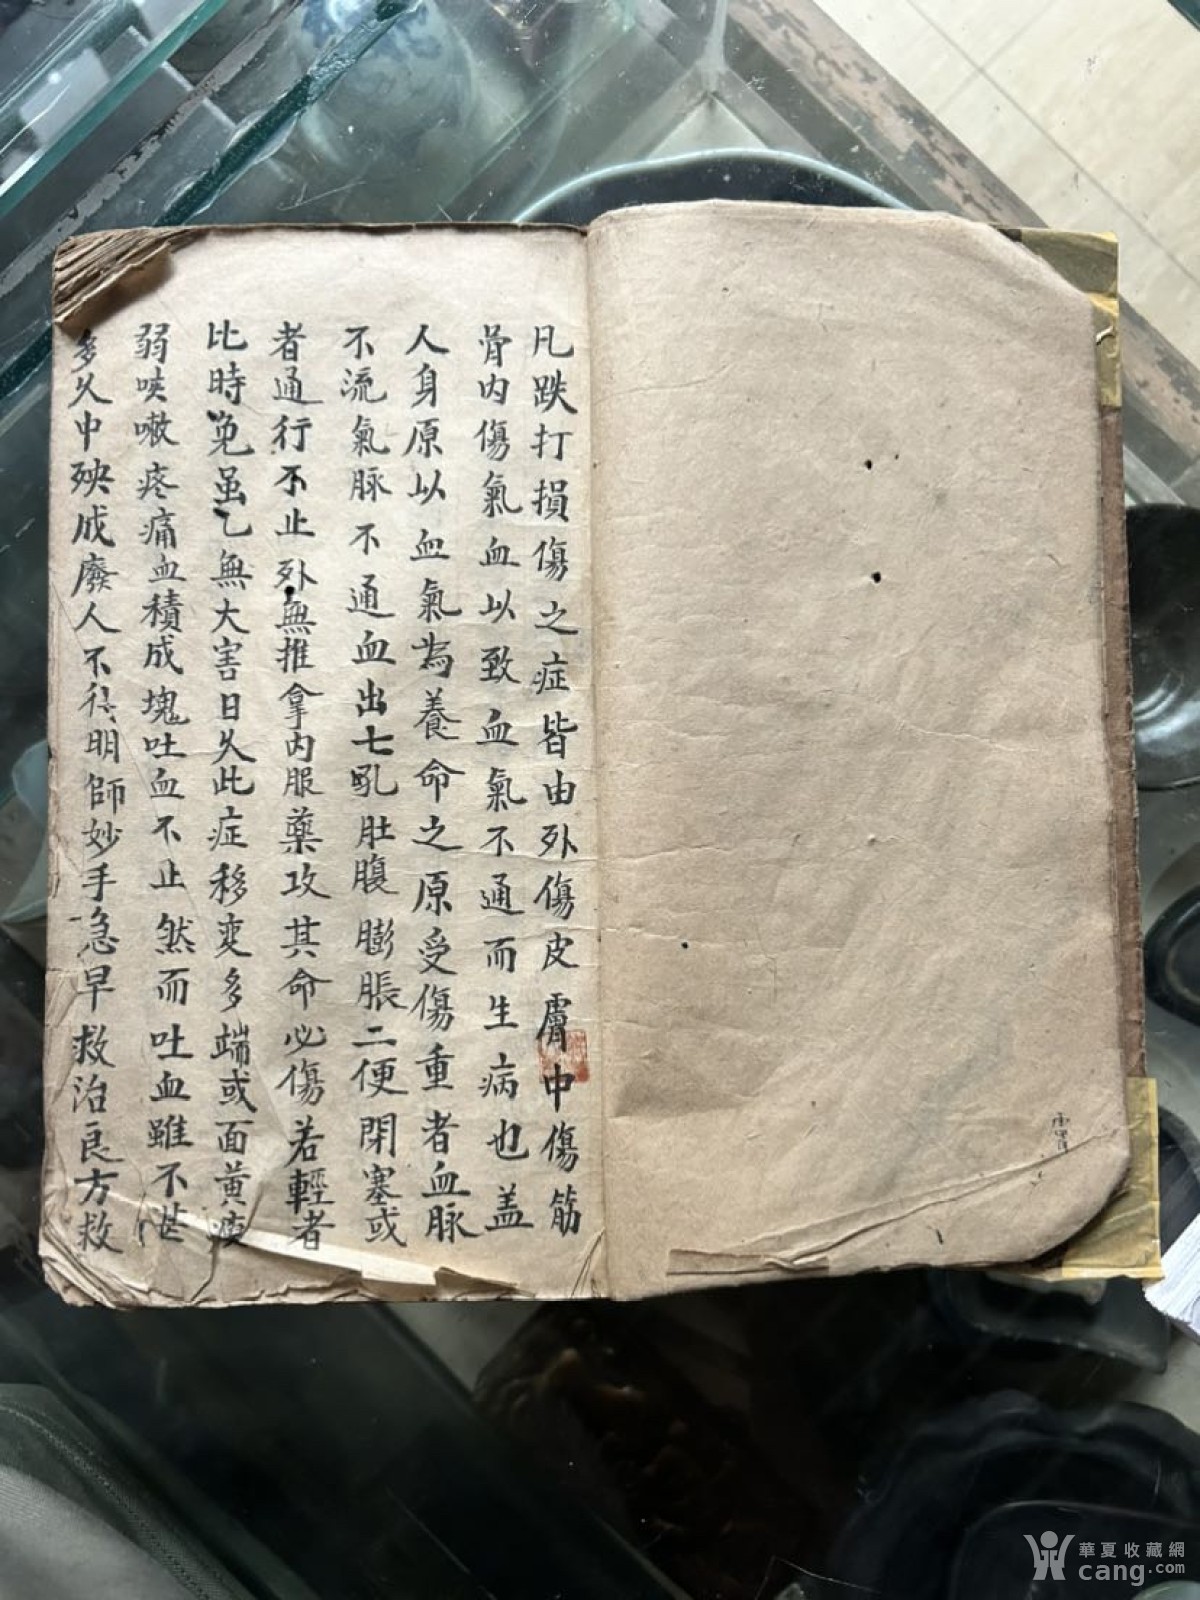 凡跌打損傷之症皆由外傷皮膚中傷筋
骨内傷氣血以致血氣不通而生病也盖
人身原以血氣為養命之原受傷重者血脉
不流氣脉不通血出七孔肚腹膨脹二便閉塞或
者通行不止外無推拿内服藥攻其命必傷若輕者
比時免虽乙無大害日久此症移变多端或面黄瘦
弱咳嗽疼痛血積成塊吐血不止然而吐血雖不甚
多久中殃成廢人不得明師妙手急早救治良方救
華夏收藏網
cang.com